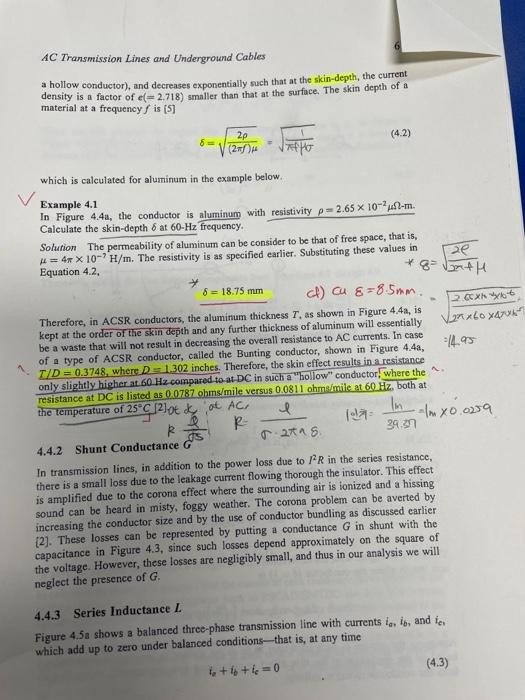 AC Transmission Lines and Underground Cables
6
a hollow conductor), and decreases exponentially such that at the skin-depth, the current
density is a factor of e(= 2.718) smaller than that at the surface. The skin depth of a
material at a frequency f is [5]
δ = √(2ρ/((2πf)μ)) = √(1/(πfμσ)) (4.2)
which is calculated for aluminum in the example below.
Example 4.1
In Figure 4.4a, the conductor is aluminum with resistivity ρ = 2.65 × 10⁻² μΩ-m.
Calculate the skin-depth δ at 60-Hz frequency.
Solution The permeability of aluminum can be consider to be that of free space, that is,
μ = 4π × 10⁻⁷ H/m. The resistivity is as specified earlier. Substituting these values in
Equation 4.2,
δ = 18.75 mm
Cu δ = 8.5mm
Therefore, in ACSR conductors, the aluminum thickness T, as shown in Figure 4.4a, is
kept at the order of the skin depth and any further thickness of aluminum will essentially
be a waste that will not result in decreasing the overall resistance to AC currents. In case
of a type of ACSR conductor, called the Bunting conductor, shown in Figure 4.4a,
T/D = 0.3748, where D = 1.302 inches. Therefore, the skin effect results in a resistance
only slightly higher at 60 Hz compared to at DC in such a "hollow" conductor, where the
resistance at DC is listed as 0.0787 ohms/mile versus 0.0811 ohms/mile at 60 Hz, both at
the temperature of 25°C [2].
at AC,
4.4.2 Shunt Conductance G
In transmission lines, in addition to the power loss due to I²R in the series resistance,
there is a small loss due to the leakage current flowing thorough the insulator. This effect
is amplified due to the corona effect where the surrounding air is ionized and a hissing
sound can be heard in misty, foggy weather. The corona problem can be averted by
increasing the conductor size and by the use of conductor bundling as discussed earlier
[2]. These losses can be represented by putting a conductance G in shunt with the
capacitance in Figure 4.3, since such losses depend approximately on the square of
the voltage. However, these losses are negligibly small, and thus in our analysis we will
neglect the presence of G.
4.4.3 Series Inductance L
Figure 4.5a shows a balanced three-phase transmission line with currents iₐ, i_b, and i_c,
which add up to zero under balanced conditions—that is, at any time
iₐ + i_b + i_c = 0 (4.3)